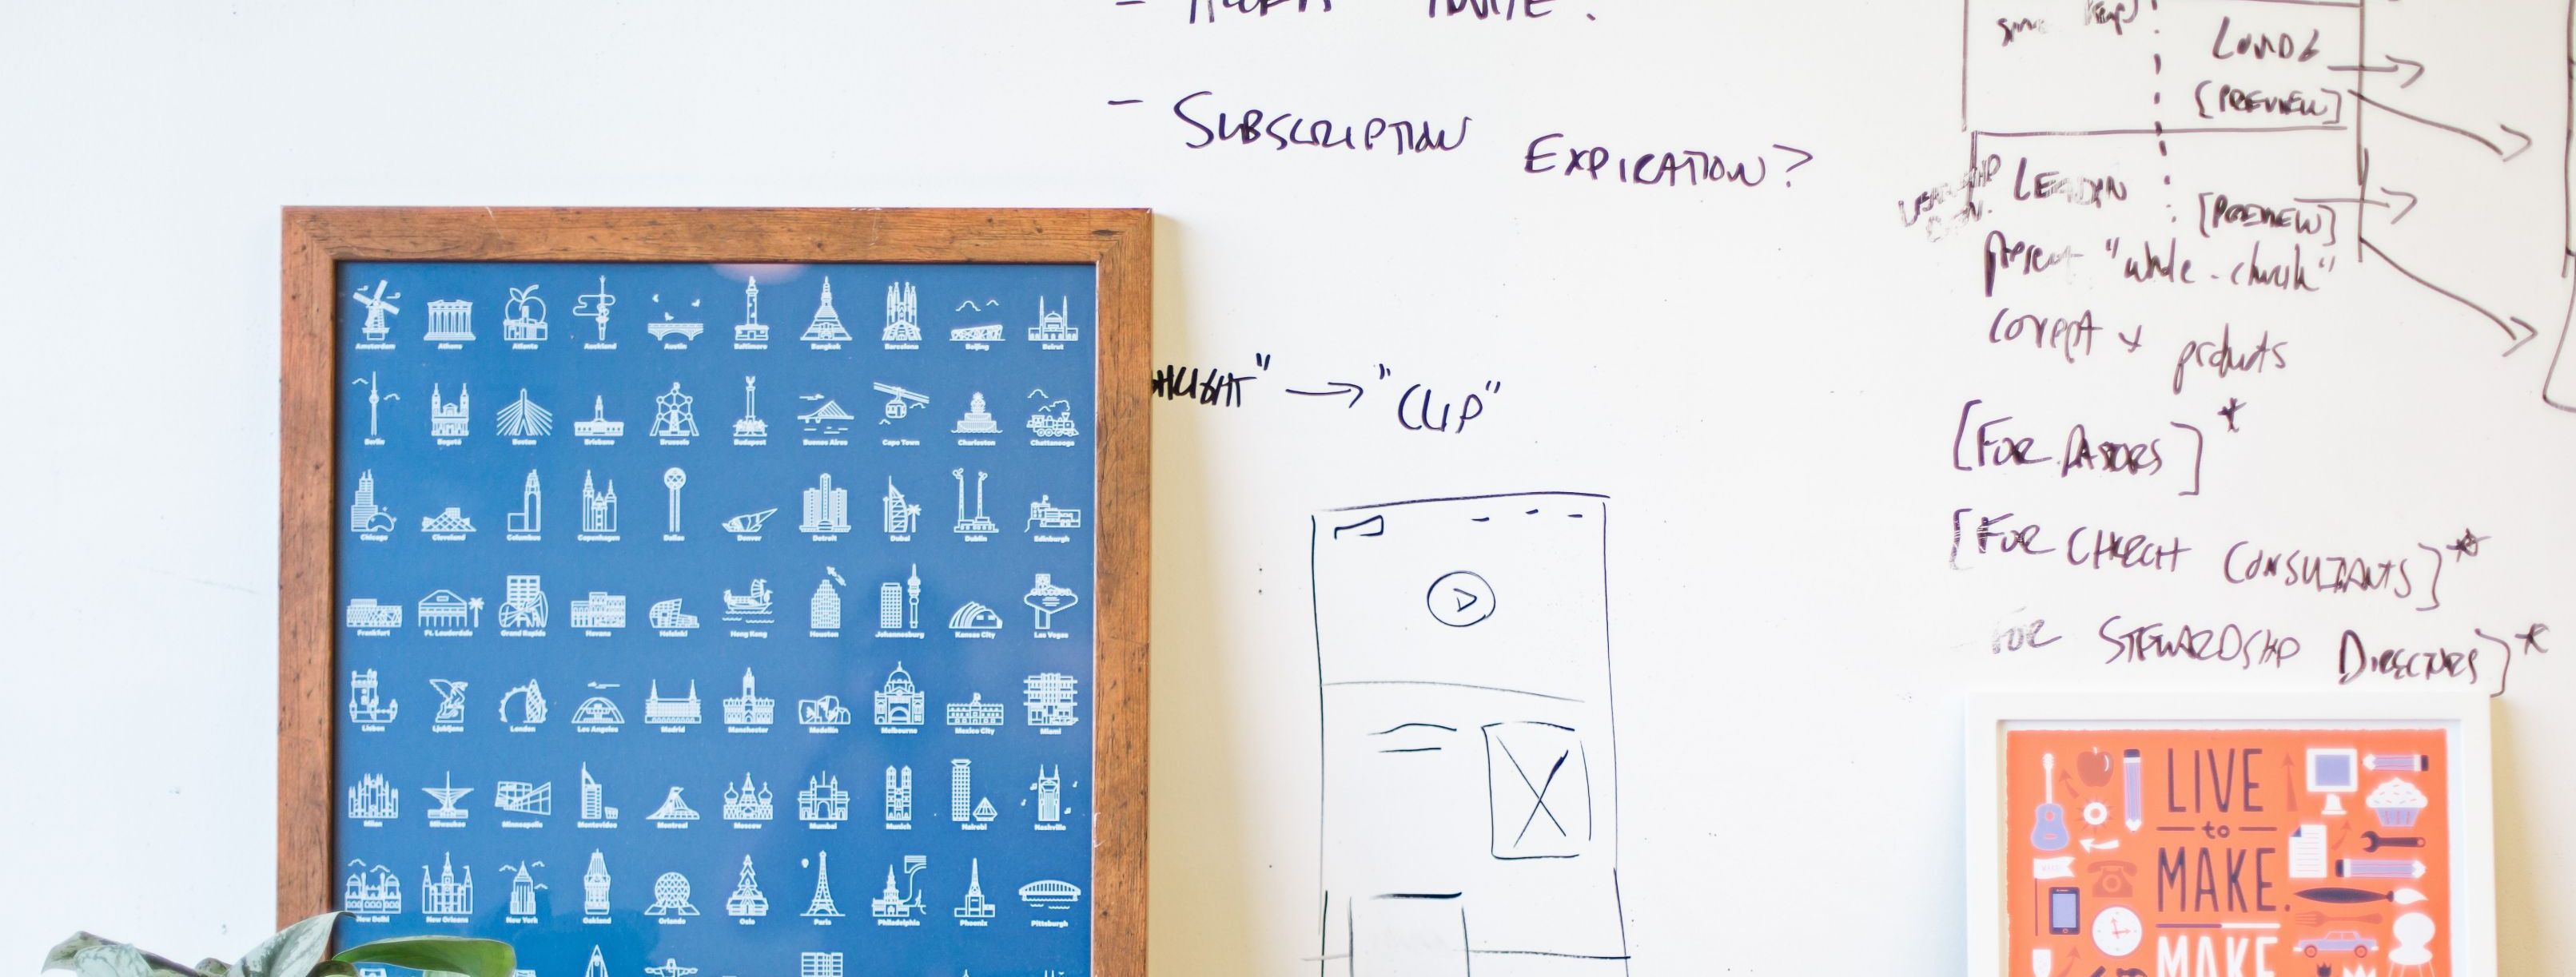 - SUBSCRIPTION EXPIRATION?
" → "CLIP"
[PREVIEW]
[PREVIEW]
products
[FOR PASTORS]*
[FOR CHURCH CONSULTANTS]*
FOR STEWARDSHIP DIRECTORS]*
Amsterdam Athens Atlanta Auckland Austin Baltimore Bangkok Barcelona Beijing Beirut
Berlin Bogotá Boston Brisbane Brussels Budapest Buenos Aires Cape Town Charleston Chattanooga
Chicago Cleveland Columbus Copenhagen Dallas Denver Detroit Dubai Dublin Edinburgh
Frankfurt Ft. Lauderdale Grand Rapids Havana Helsinki Hong Kong Houston Johannesburg Kansas City Las Vegas
Lisbon Ljubljana London Los Angeles Madrid Manchester Medellín Melbourne Mexico City Miami
Milan Milwaukee Minneapolis Montevideo Montreal Moscow Mumbai Munich Nairobi Nashville
New Delhi New Orleans New York Oakland Orlando Oslo Paris Philadelphia Phoenix Pittsburgh
LIVE
to
MAKE.
MAKE